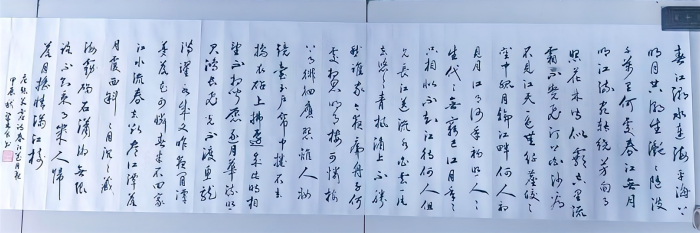 春江潮水连海平海上
明月共潮生滟〻随波
千万里何处春江无月
明江流宛转绕芳甸月
照花林皆似霰空里流
霜不觉飞汀上白沙看
不见江天一色无纤尘皎〻
空中孤月轮江畔何人初
见月江月何年初照人人
生代〻无穷已江月年〻
只相似不知江月待何人但
见长江送流水白云一片
去悠〻青枫浦上不胜
愁谁家今夜扁舟子何
处相思明月楼可怜楼
上月徘徊应照离人妆
镜台玉户帘中捲不去
捣衣砧上拂还来此时相
望不相闻愿逐月华流照
君鸿雁长飞光不度鱼龙
潜跃水成文昨夜闲潭
梦落花可怜春半不还家
江水流春去欲尽江潭落
月复西斜〻月沉〻藏
海雾碣石潇湘无限
路不知乘月几人归
落月摇情满江树
唐张若虚诗春江花月夜
甲辰秋